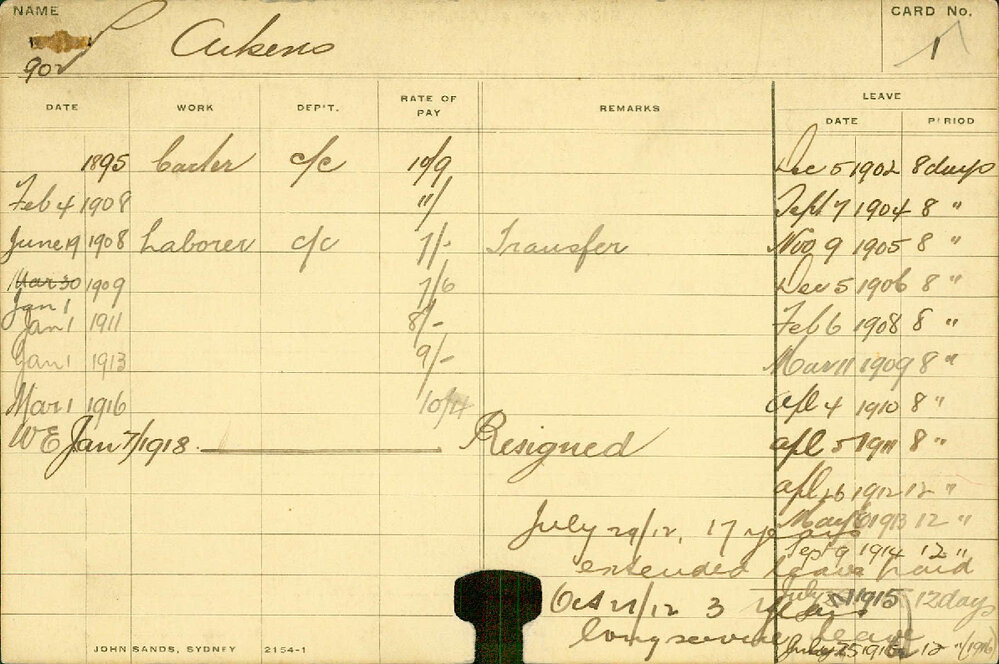 NAME
CARD No.
902 Aikens 1
DATE WORK DEP'T. RATE OF PAY REMARKS LEAVE
DATE PERIOD
1895 Carter c/c 10/9 Dec 5 1902 8 days
Feb 4 1908 11/ Sept 7 1904 8 "
June 19 1908 Laborer c/c 7/- Transfer Nov 9 1905 8 "
Mar 30 1909 7/6 Dec 5 1906 8 "
Jan 1
Jan 1 1911 8/- Feb 6 1908 8 "
Jan 1 1913 9/- Mar 11 1909 8 "
Mar 1 1916 10/4 Apl 4 1910 8 "
WE Jan 7/1918. Resigned Apl 5 1911 8 "
Apl 26 1912 12 "
July 29/12, 17 years May 1913 12 "
Sept 9 1914 12 "
extended leave paid
Oct 21/12 3 years July 1915 12 days
long service leave July 25 1916 12 " (1916)
JOHN SANDS, SYDNEY 2154-1